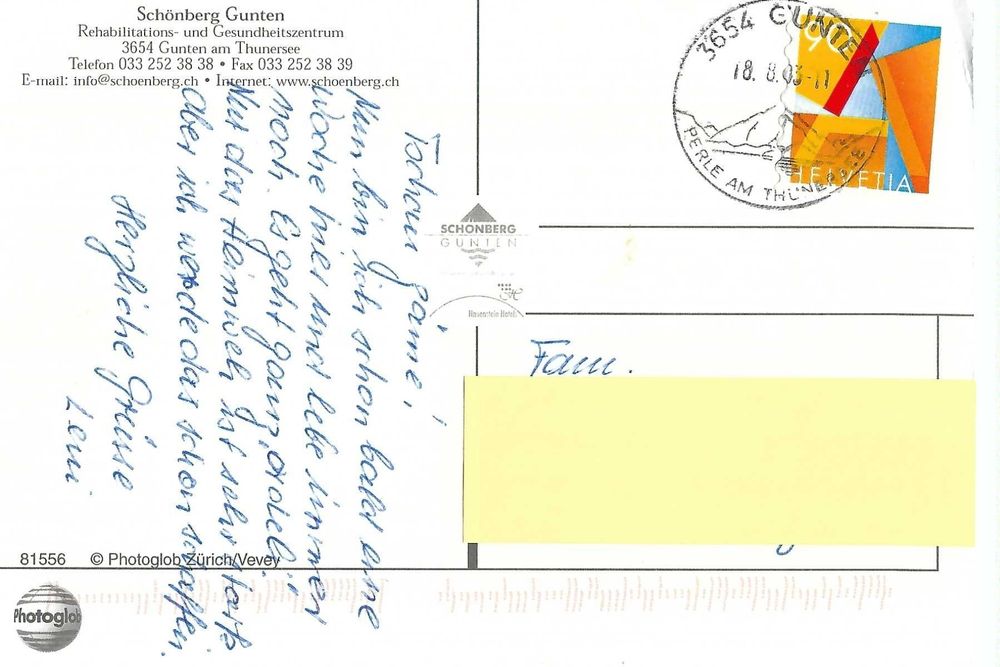 Schönberg Gunten
Rehabilitations- und Gesundheitszentrum
3654 Gunten am Thunersee
Telefon 033 252 38 38 • Fax 033 252 38 39
E-mail: info@schoenberg.ch • Internet: www.schoenberg.ch
3654 GUNTEN
18. 8. 03-11
PERLE AM THUNERSEE
90
HELVETIA
Tschau zäme,
Nun bin ich schon bald eine
Woche hier und lebe immer
noch. Es geht ganz
Nur das Heimweh ist sehr stark
aber ich werde das schon schaffen.
Herzliche Grüsse
Leni
SCHÖNBERG
GUNTEN
Hauenstein Hotels
Fam.
81556 © Photoglob Zürich/Vevey
Photoglob